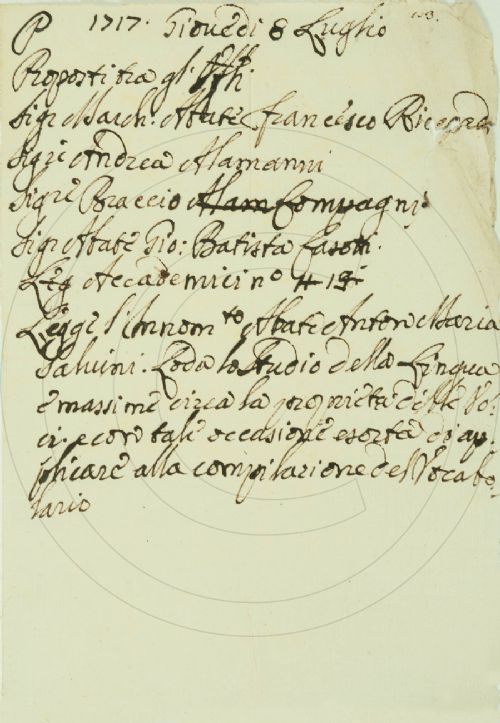 P 1717. Giovedi 8 Luglio
Proposti tra gl'Uffi:
Sig.re March: Abate Francesco Riccardi
Sig.re Andrea Alamanni
Sig.re Braccio Alam Compagni
Sig.re Abate Gio: Batista Fasotti.
Leg Accademici n.o 19
Legge l'Innom.to Abate Anton Maria
Salvini. Loda lo studio della Lingua
e massime circa la proprietà delle Vo:
ci. e con tale occasione esorta di ap:
plicare alla compilazione del Vocabo:
lario